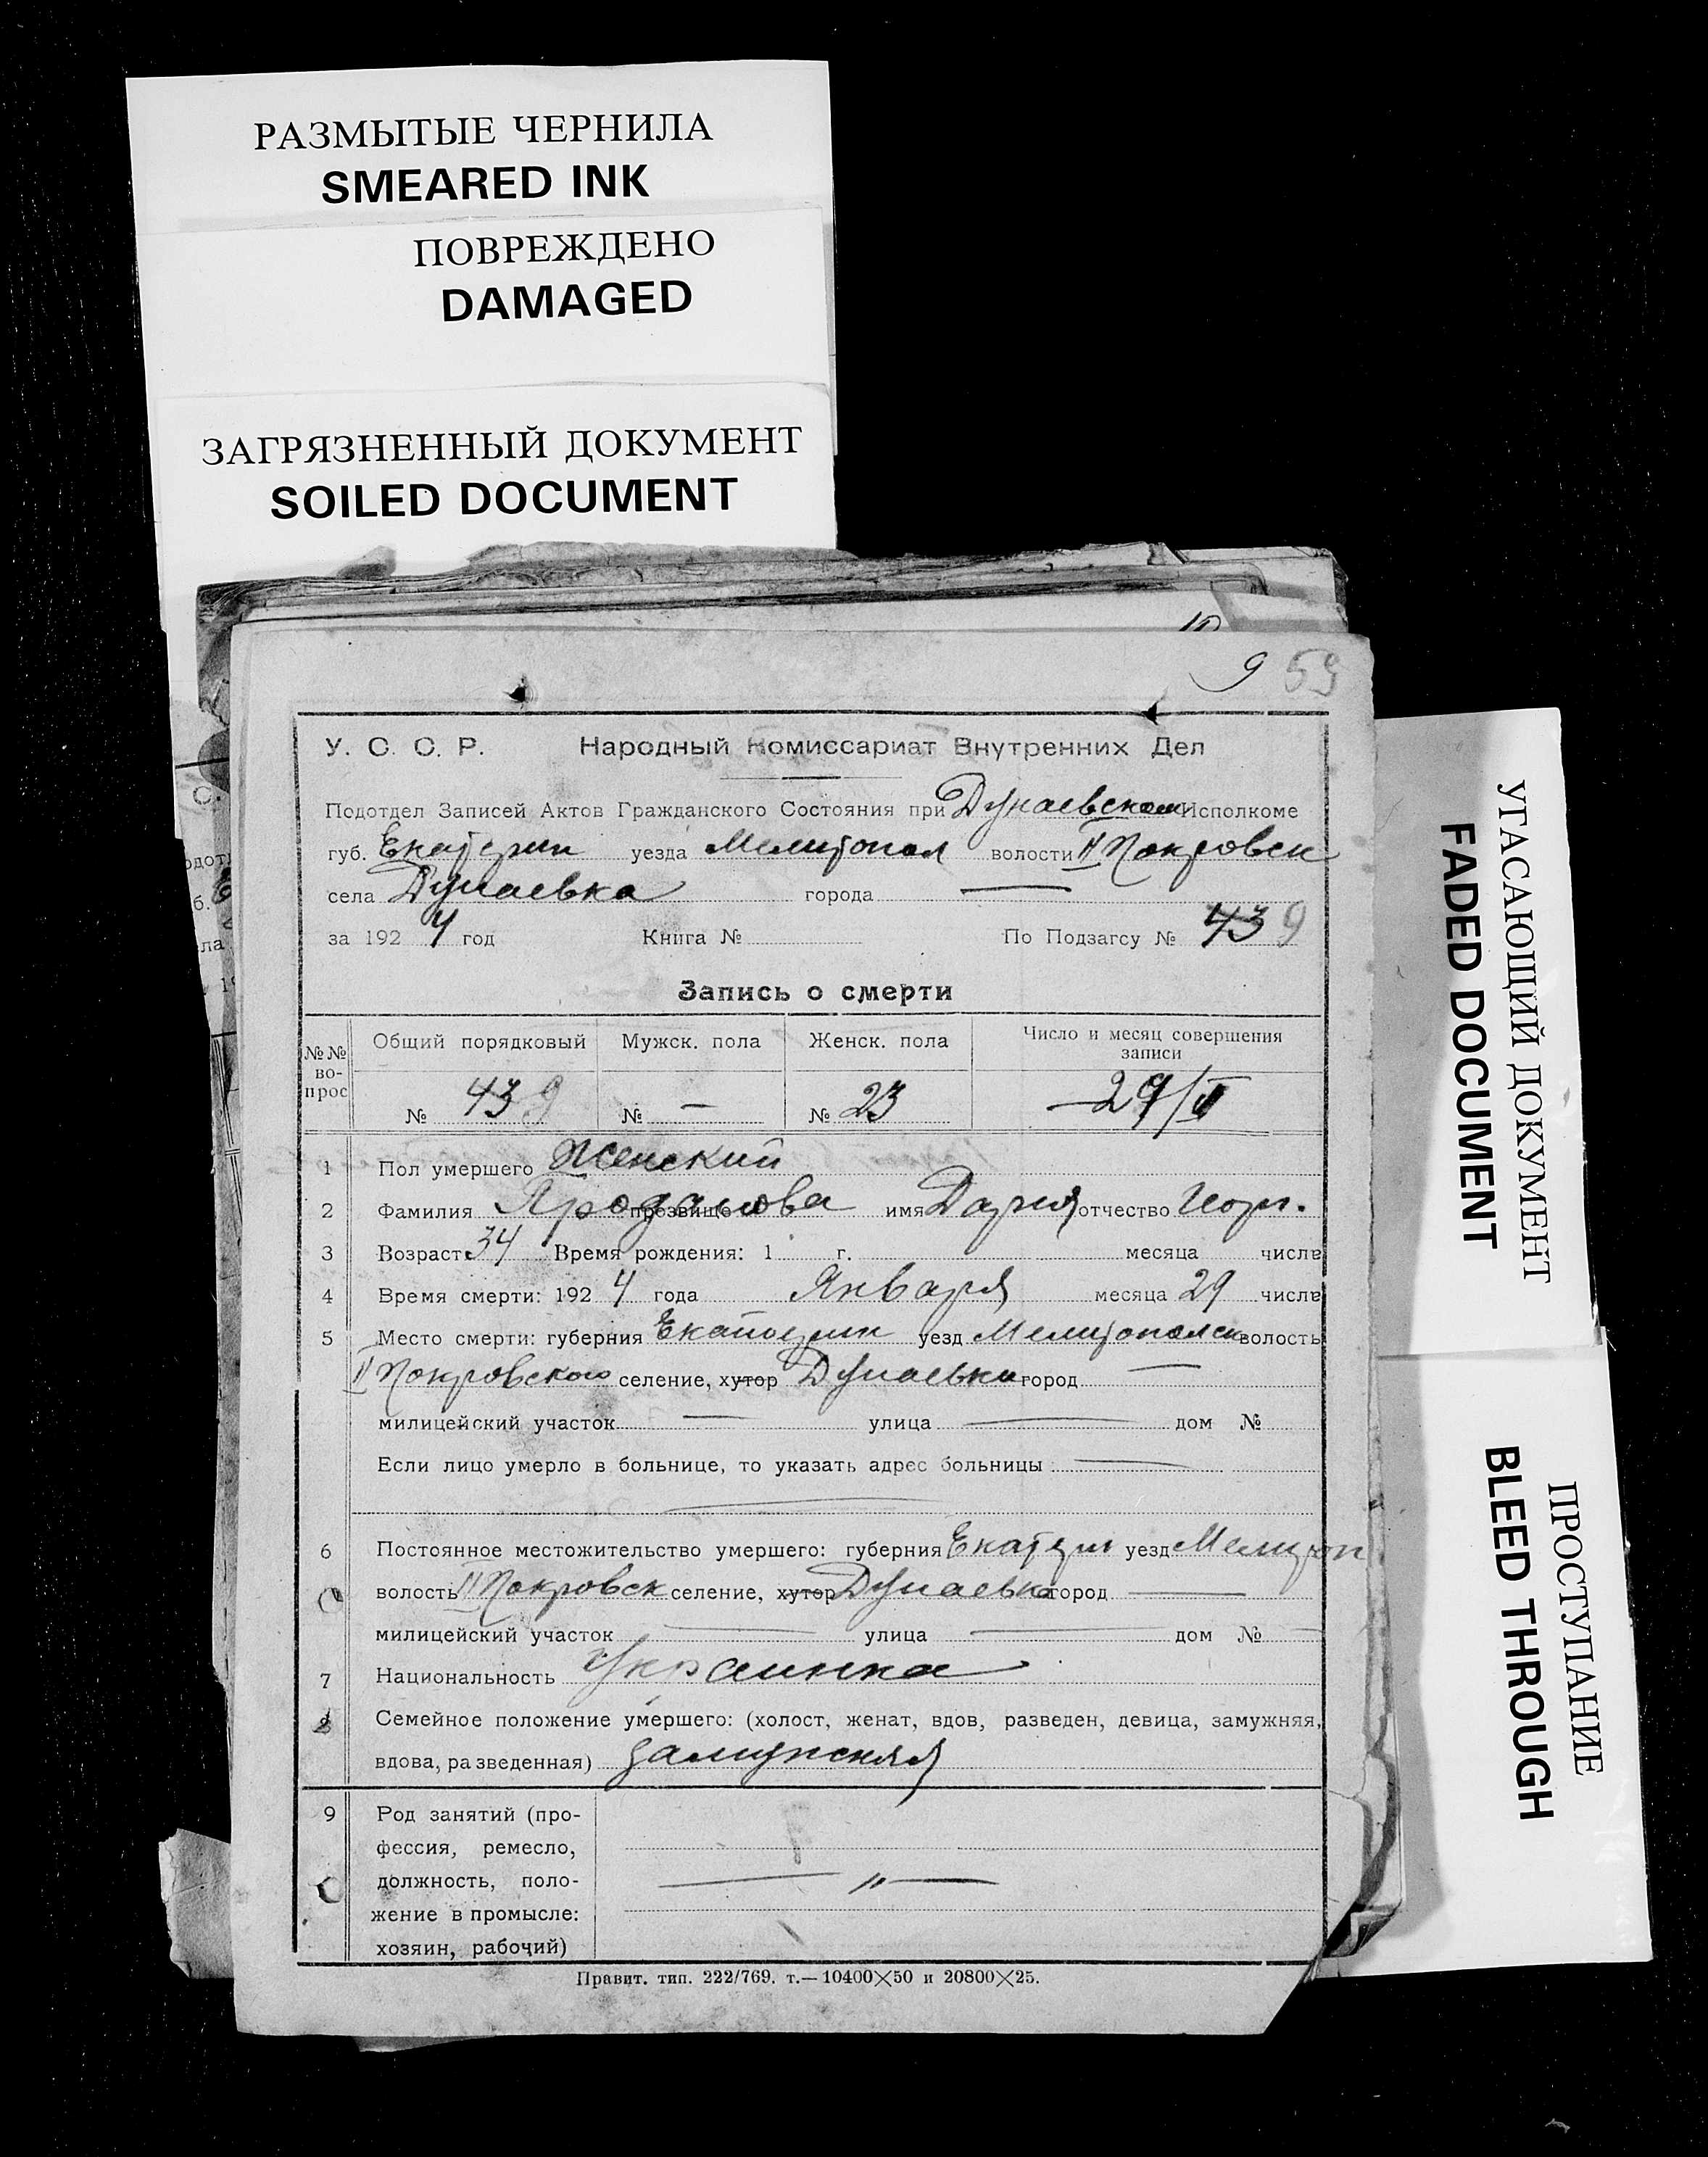 РАЗМЫТЫЕ ЧЕРНИЛА
SMEARED INK
ПОВРЕЖДЕНО
DAMAGED
ЗАГРЯЗНЕННЫЙ ДОКУМЕНТ
SOILED DOCUMENT
9 59
У. С. С. Р. Народный Комиссариат Внутренних Дел
Подотдел Записей Актов Гражданского Состояния при Дунаевском Исполкоме
губ. Екатерин уезда Мелитопол волости II Покровск
села Дунаевка города —
за 1924 год Книга № По Подзагсу № 43 9
Запись о смерти
№№ вопрос Общий порядковый Мужск. пола Женск. пола Число и месяц совершения записи
№ 43 9 № — № 23 29/II
1 Пол умершего Женский
2 Фамилия прозвище Проданова имя Дария отчество Георг.
3 Возраст 34 Время рождения: 1 г. месяца числа
4 Время смерти: 1924 года Января месяца 29 числа
5 Место смерти: губерния Екатерин уезд Мелитопольск волость
II Покровского селение, хутор Дунаевка город —
милицейский участок — улица — дом №
Если лицо умерло в больнице, то указать адрес больницы —
6 Постоянное местожительство умершего: губерния Екатерин уезд Мелитоп
волость II Покровск селение, хутор Дунаевка город —
милицейский участок — улица — дом №
7 Национальность Украинка
8 Семейное положение умершего: (холост, женат, вдов, разведен, девица, замужняя,
вдова, разведенная) замужняя
9 Род занятий (про-
фессия, ремесло,
должность, поло- — " —
жение в промысле:
хозяин, рабочий)
Правит. тип. 222/769. т.—10400×50 и 20800×25.
УГАСАЮЩИЙ ДОКУМЕНТ
FADED DOCUMENT
ПРОСТУПАНИЕ
BLEED THROUGH